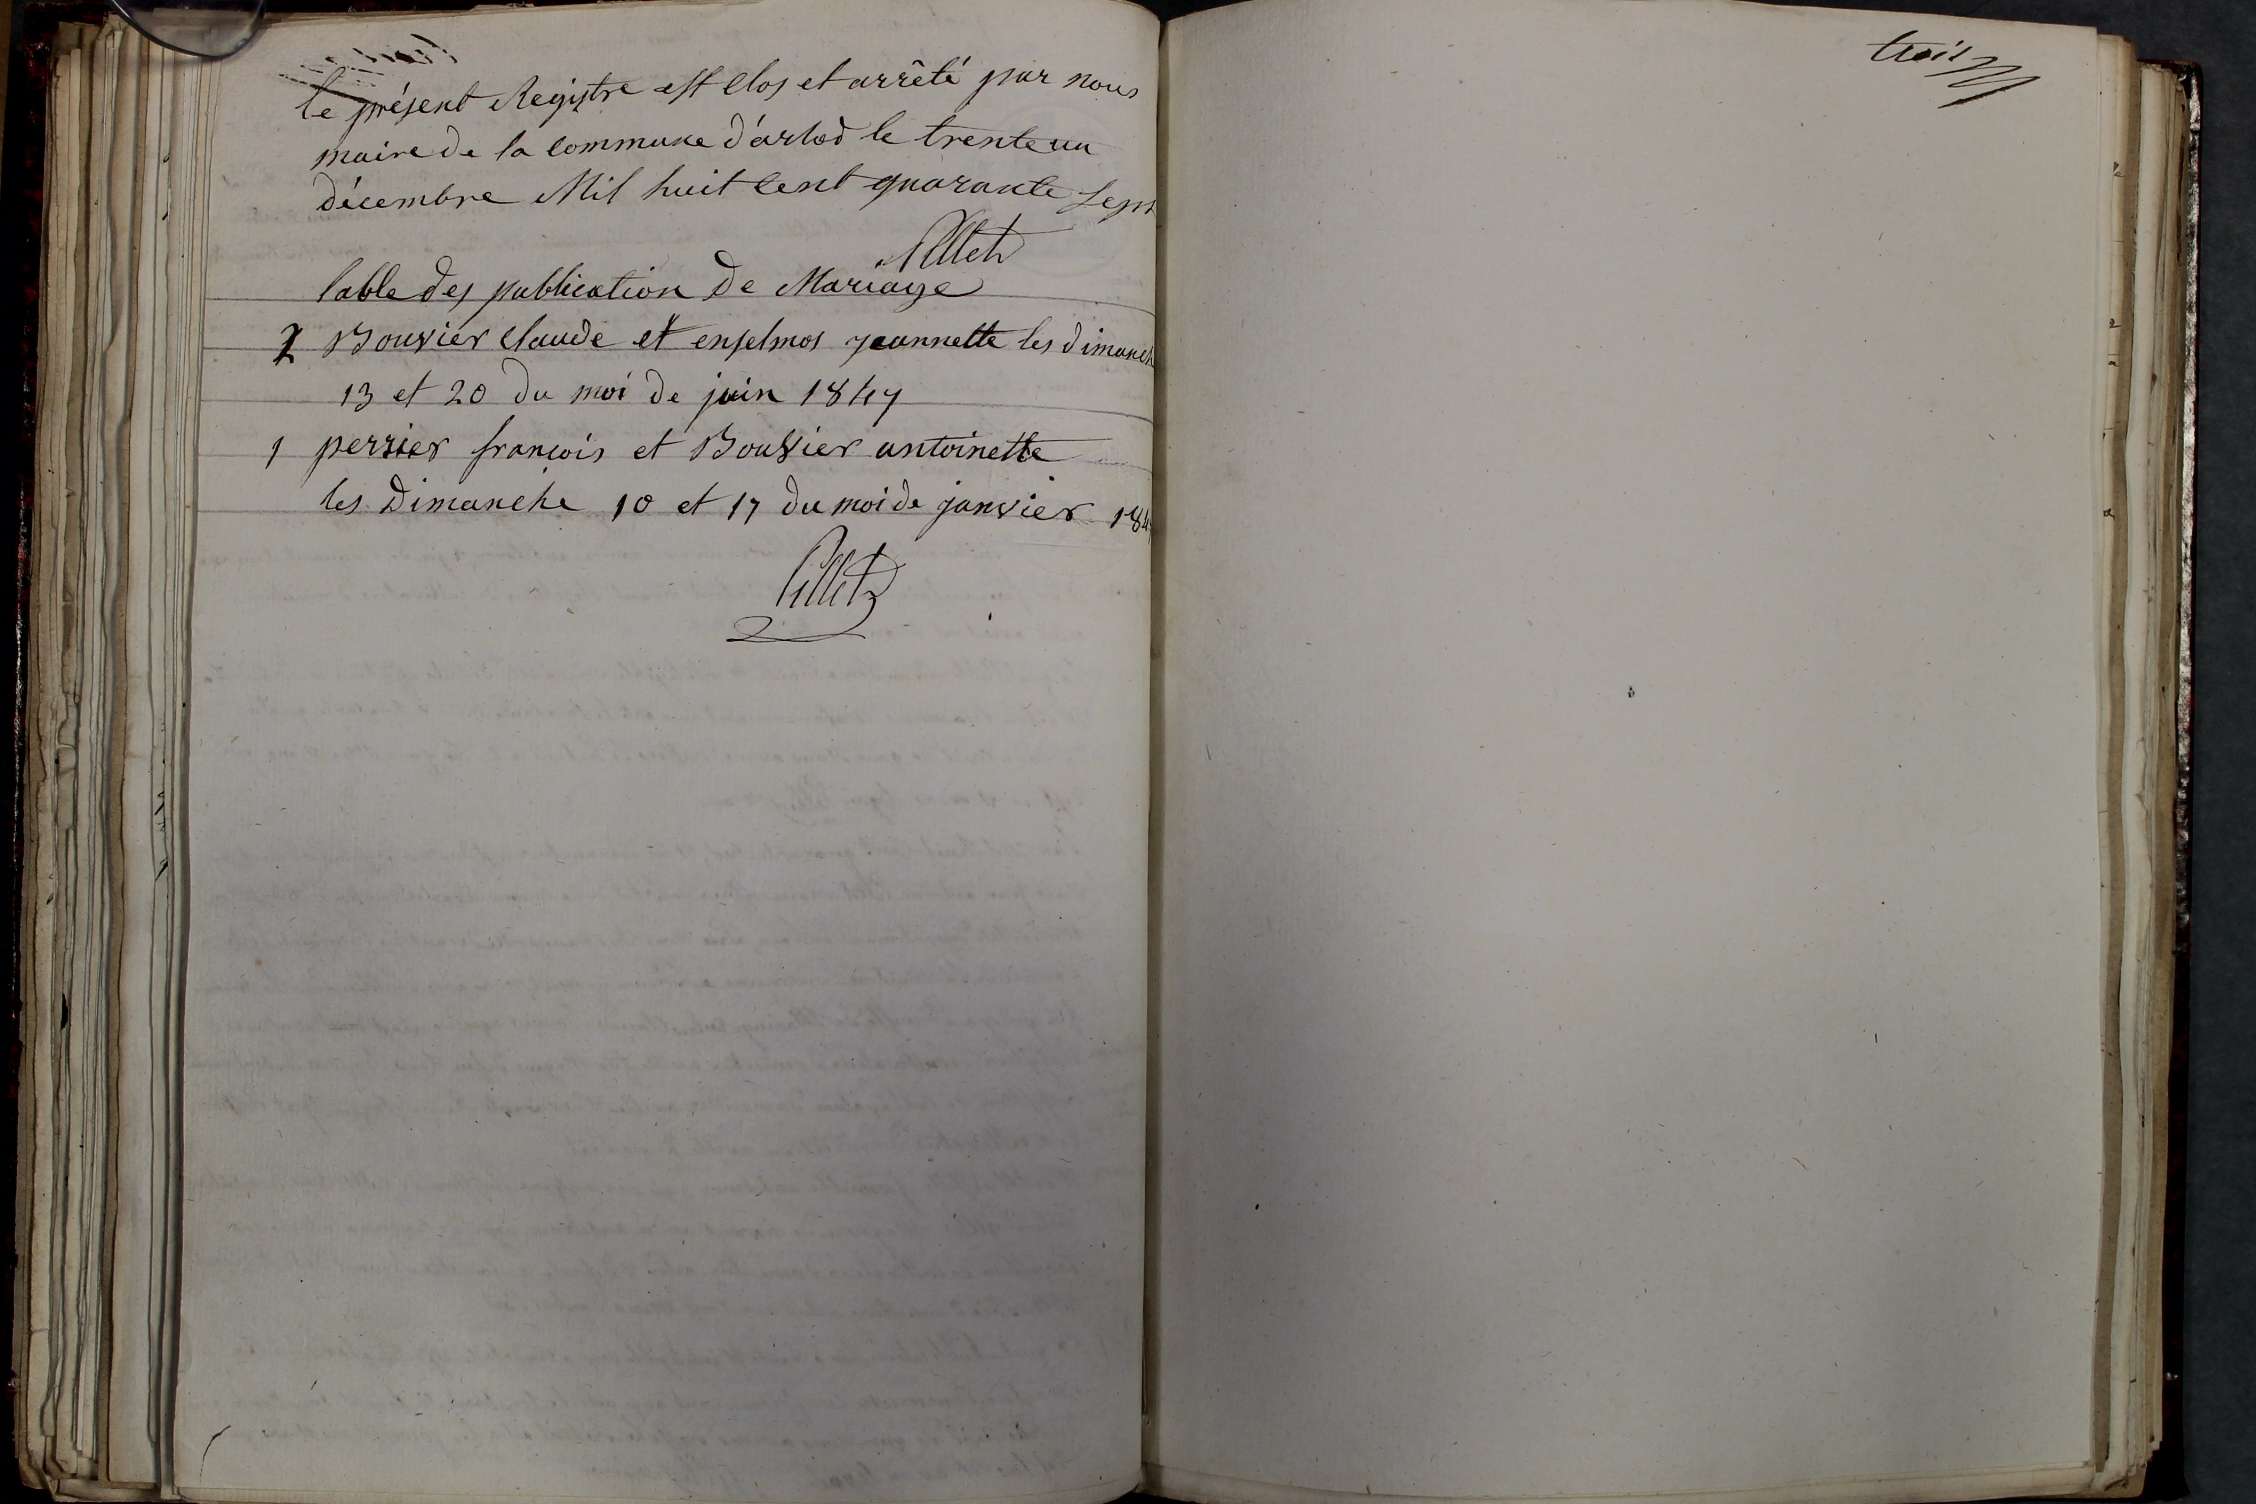 le présent Registre est clos et arrêté par nous
maire de la commune d'arlod le trente un
décembre Mil huit cent quarante sept
Pillet
table des publication de Mariage
2 Bouvier Claude et enselmos jeannette les dimanch
13 et 20 du moi de juin 1847
1 perrier françois et Bouvier antoinette
les Dimanche 10 et 17 du moi de janvier 184
Pillet
trois